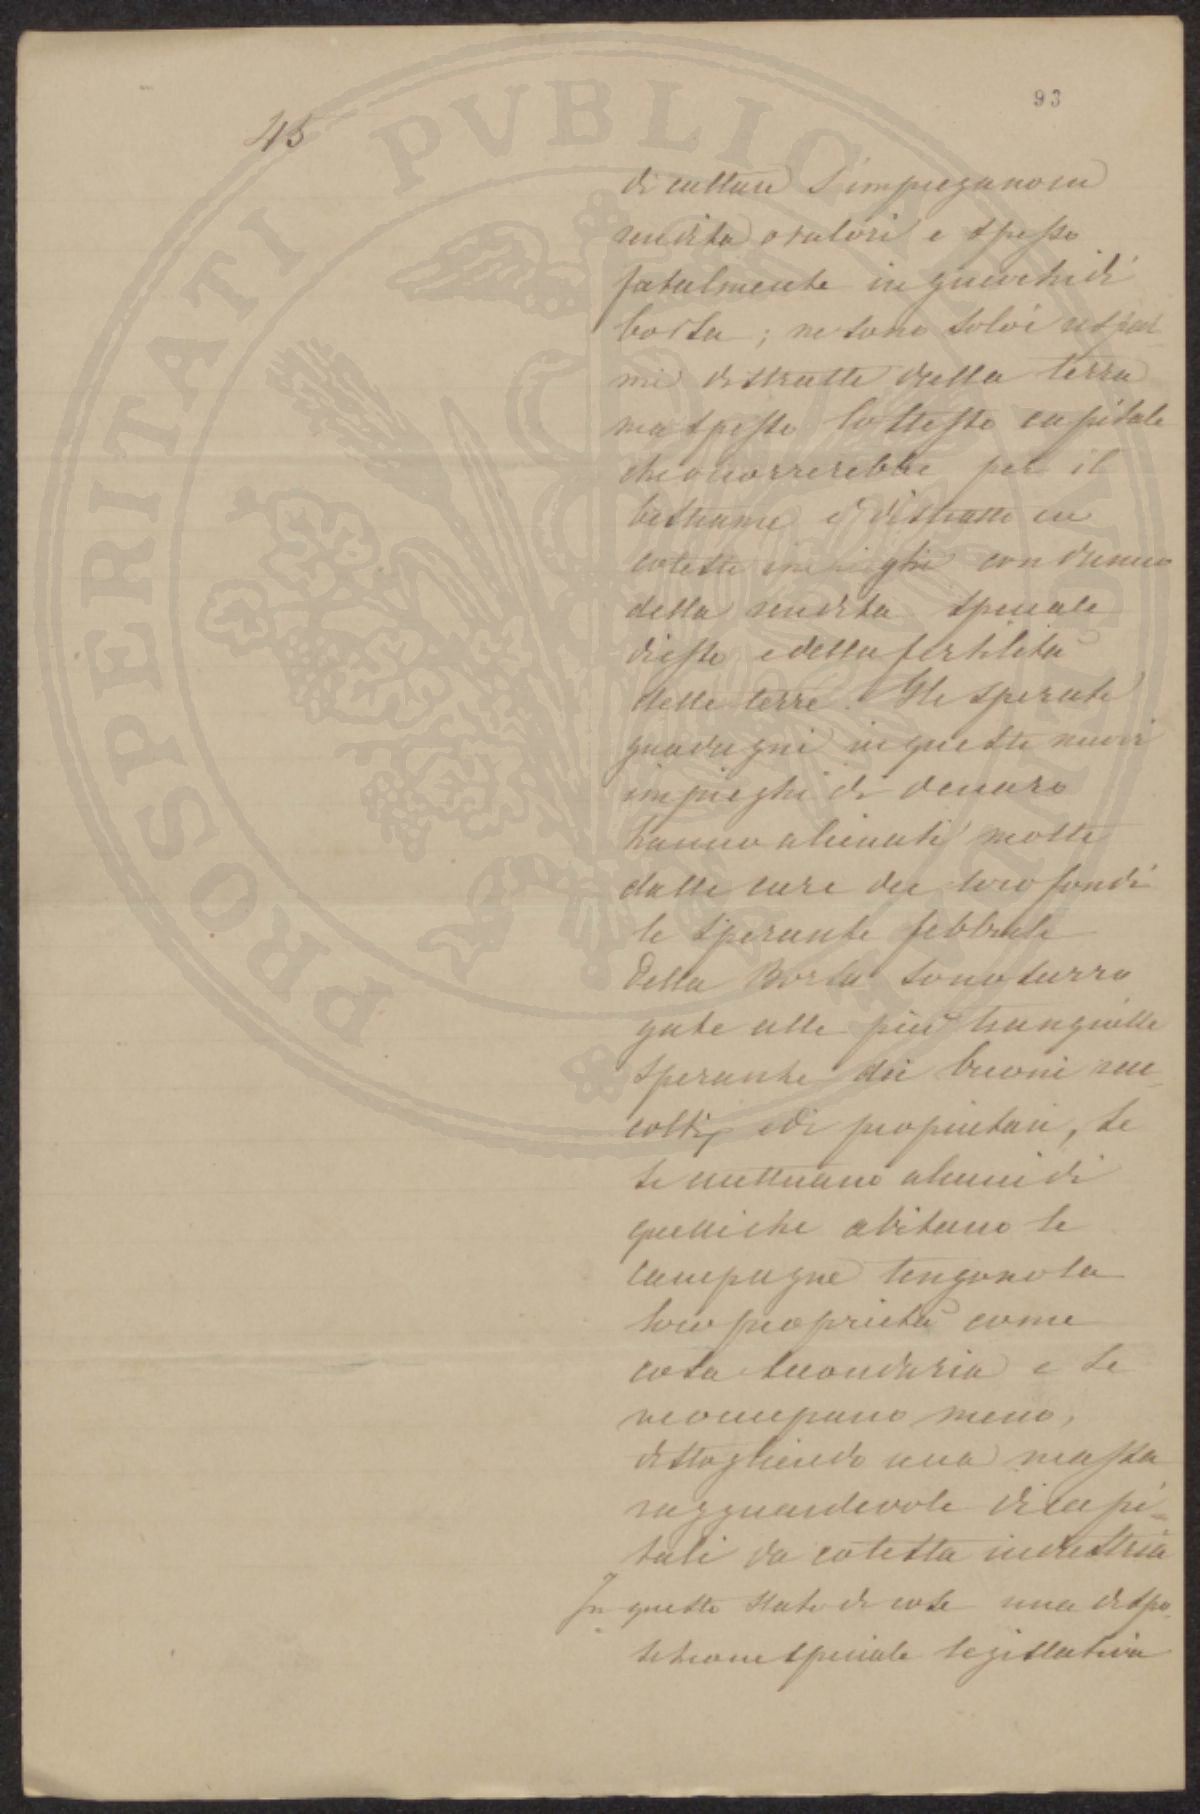 93
45
di culture s'impiegano in
rendita o valori e spesso
fatalmente in giuochi di
borsa; ne sono solo i rispar-
mi distratti dalla terra
ma spesso lo stesso capitale
che occorrerebbe per il
bestiame è distratto in
cotesti impieghi con danno
della rendita speciale
di esso e della fertilità
delle terre. Gli sperati
guadagni in questi nuovi
impieghi di denaro
hanno alienati molti
dalle cure dei loro fondi
le speranze febbrili
della Borsa sono surro
gate alle più tranquille
speranze dei buoni rac-
colti, ed i proprietari, se
se eccettuano alcuni di
quelli che abitano le
campagne tengono la
loro proprietà come
cosa secondaria e se
ne occupano meno,
distogliendo una massa
ragguardevole di capi=
tali da cotesta industria
In questo stato di cose una dispo
sizione speciale legislativa
PROSPERITATI PVBLICAE